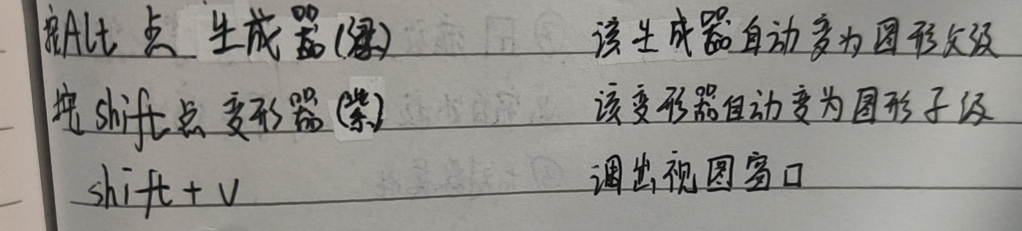 按Alt 点 生成器(绿) 该生成器自动变为图形父级
按shift点 变形器(紫) 该变形器自动变为图形子级
shift+V 调出视图窗口